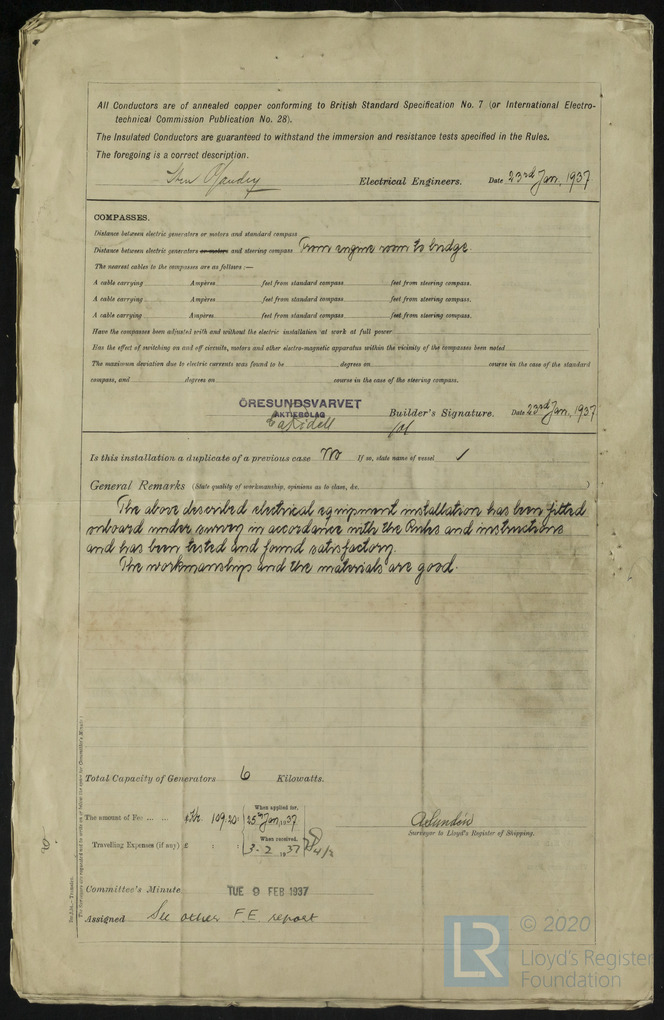 All Conductors are of annealed copper conforming to British Standard Specification No. 7 (or International Electro-
technical Commission Publication No. 28).
The Insulated Conductors are guaranteed to withstand the immersion and resistance tests specified in the Rules.
The foregoing is a correct description.
Electrical Engineers. Date 23rd Jan. 1937
COMPASSES.
Distance between electric generators or motors and standard compass
Distance between electric generators or motors and steering compass From engine room to bridge.
The nearest cables to the compasses are as follows :—
A cable carrying Ampères feet from standard compass feet from steering compass.
A cable carrying Ampères feet from standard compass feet from steering compass.
A cable carrying Ampères feet from standard compass feet from steering compass.
Have the compasses been adjusted with and without the electric installation at work at full power
Has the effect of switching on and off circuits, motors and other electro-magnetic apparatus within the vicinity of the compasses been noted
The maximum deviation due to electric currents was found to be degrees on course in the case of the standard
compass, and degrees on course in the case of the steering compass.
ÖRESUNDSVARVET
AKTIEBOLAG
Builder's Signature. Date 23rd Jan. 1937
Is this installation a duplicate of a previous case No If so, state name of vessel ✓
General Remarks (State quality of workmanship, opinions as to class, &c.)
The above described electrical equipment installation has been fitted
onboard under survey in accordance with the Rules and instructions
and has been tested and found satisfactory.
The workmanships and the materials are good.
Total Capacity of Generators 6 Kilowatts.
When applied for,
The amount of Fee ... ... Kr. 109.20: 25th Jan. 1937
When received,
Travelling Expenses (if any) £ : : 3-2 1937 4/2
Surveyor to Lloyd's Register of Shipping.
Committee's Minute TUE 9 FEB 1937
Assigned See other F.E. report
© 2020
LR
Lloyd's Register
Foundation